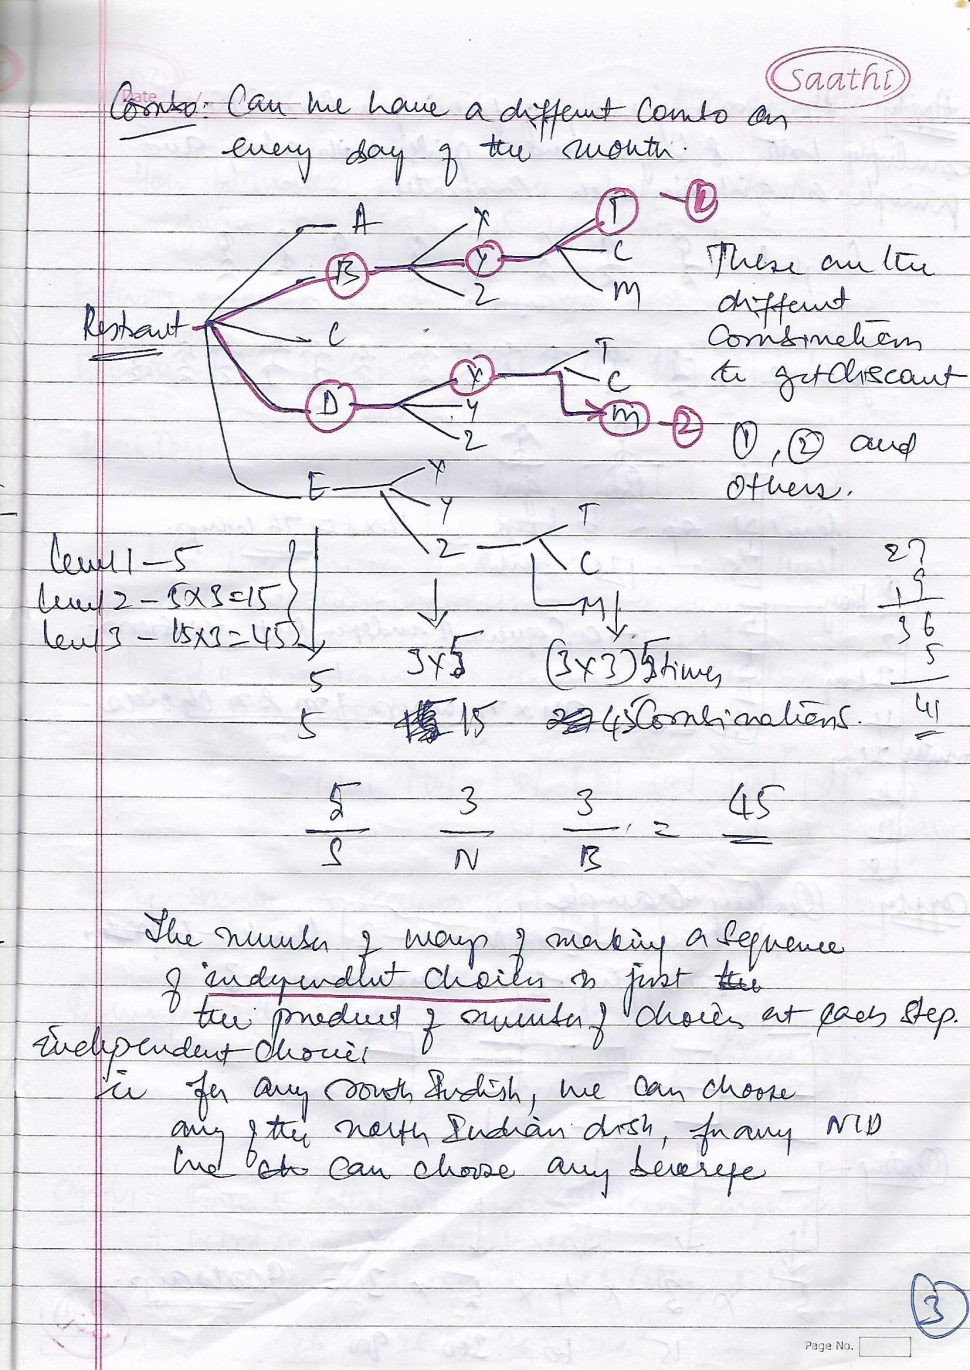 Saathi
Date
Combo: Can we have a different Combo on
every day of the month.
A
X
T
1
B
Y
C
Z
M
These are the
different
Combination
to get discount
Restrant
C
X
T
C
D
Y
M
2
Z
1, 2 and
others.
E
X
Y
Z
T
C
M
Level 1 - 5
Level 2 - 5x3=15
Level 3 - 15x3=45
27
9
36
5
41
5
3x5
(3x3)5times
5
15
45 Combinations.
5 3 3 = 45
S N B
The number of ways of making a Sequence
of independent choices is just the
the product of number of choices at each step.
Independent choices
ie for any South Indish, we can choose
any of the north Indian dish, for any NID
we can choose any beverage
3
Page No.